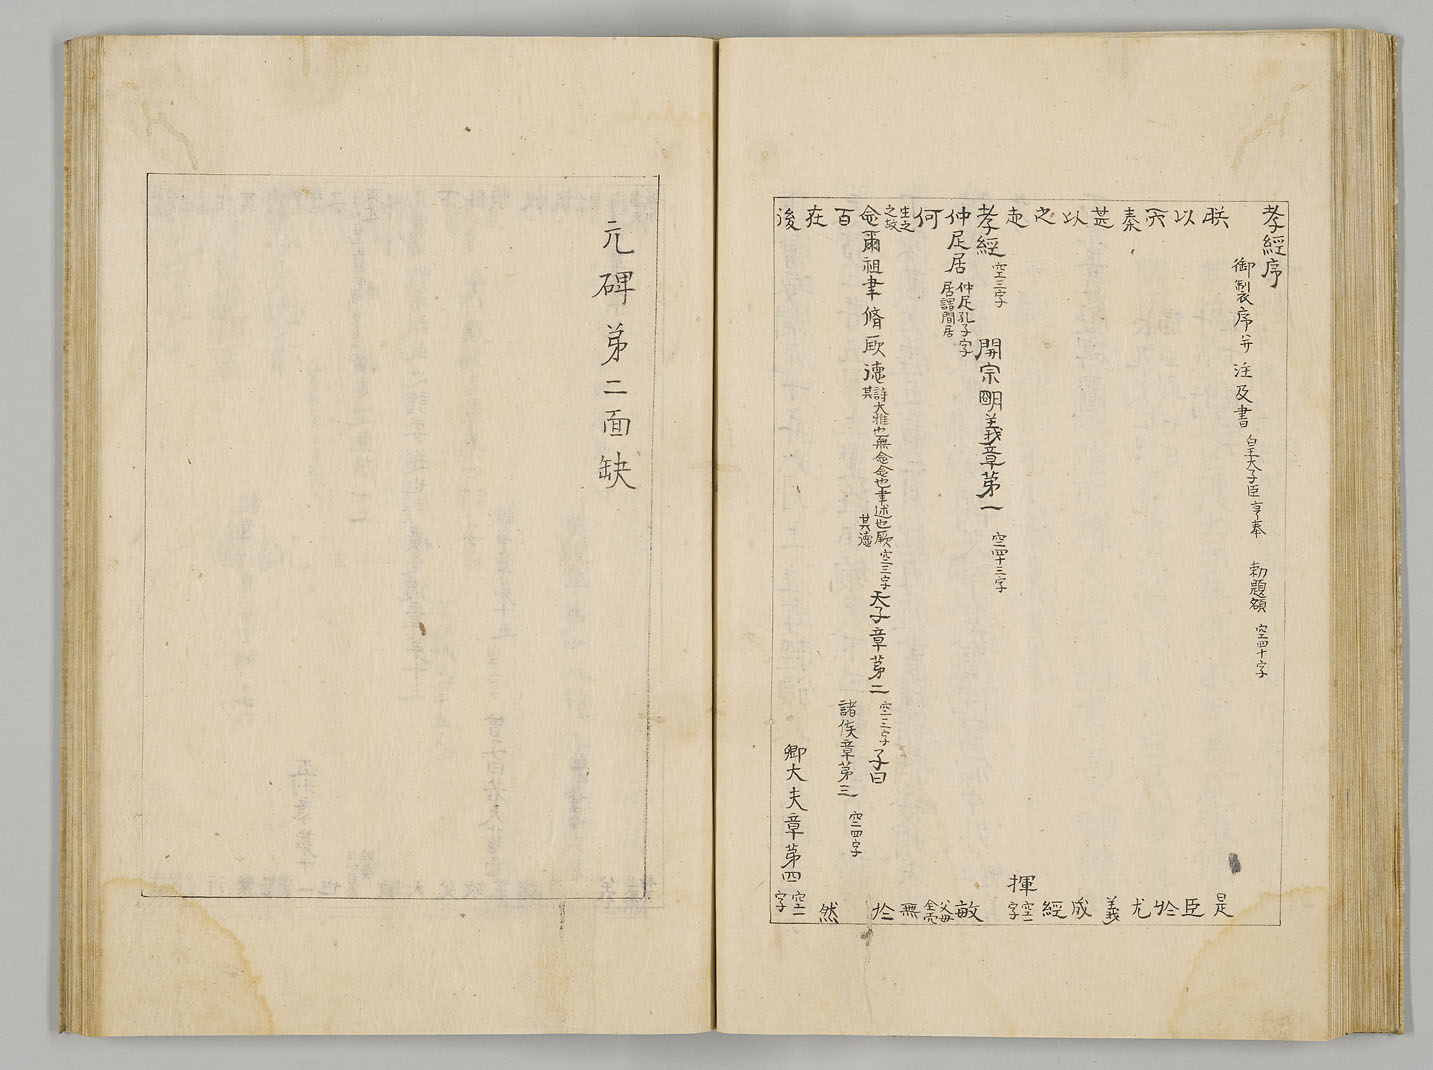 孝經序
御製序并注及書 皇太子臣亨奉 勅題額 空四十字
朕 是
以 臣
㒵 於
秦 尤
甚 義
以 成
之 經
走 揮 空一字
孝經 空三字 開宗明義章第一 空四十三字
仲尼居 仲尼孔子字 居謂閒居 敏
何 父母全而
生之 之故 無
念爾祖聿脩厥德 詩大雅也無念念也聿述也厥其 其德 空三字 天子章第二 空三字 子曰 於
百 諸侯章第三 空四字
在 然
後 卿大夫章第四 空一字
元碑第二面缺